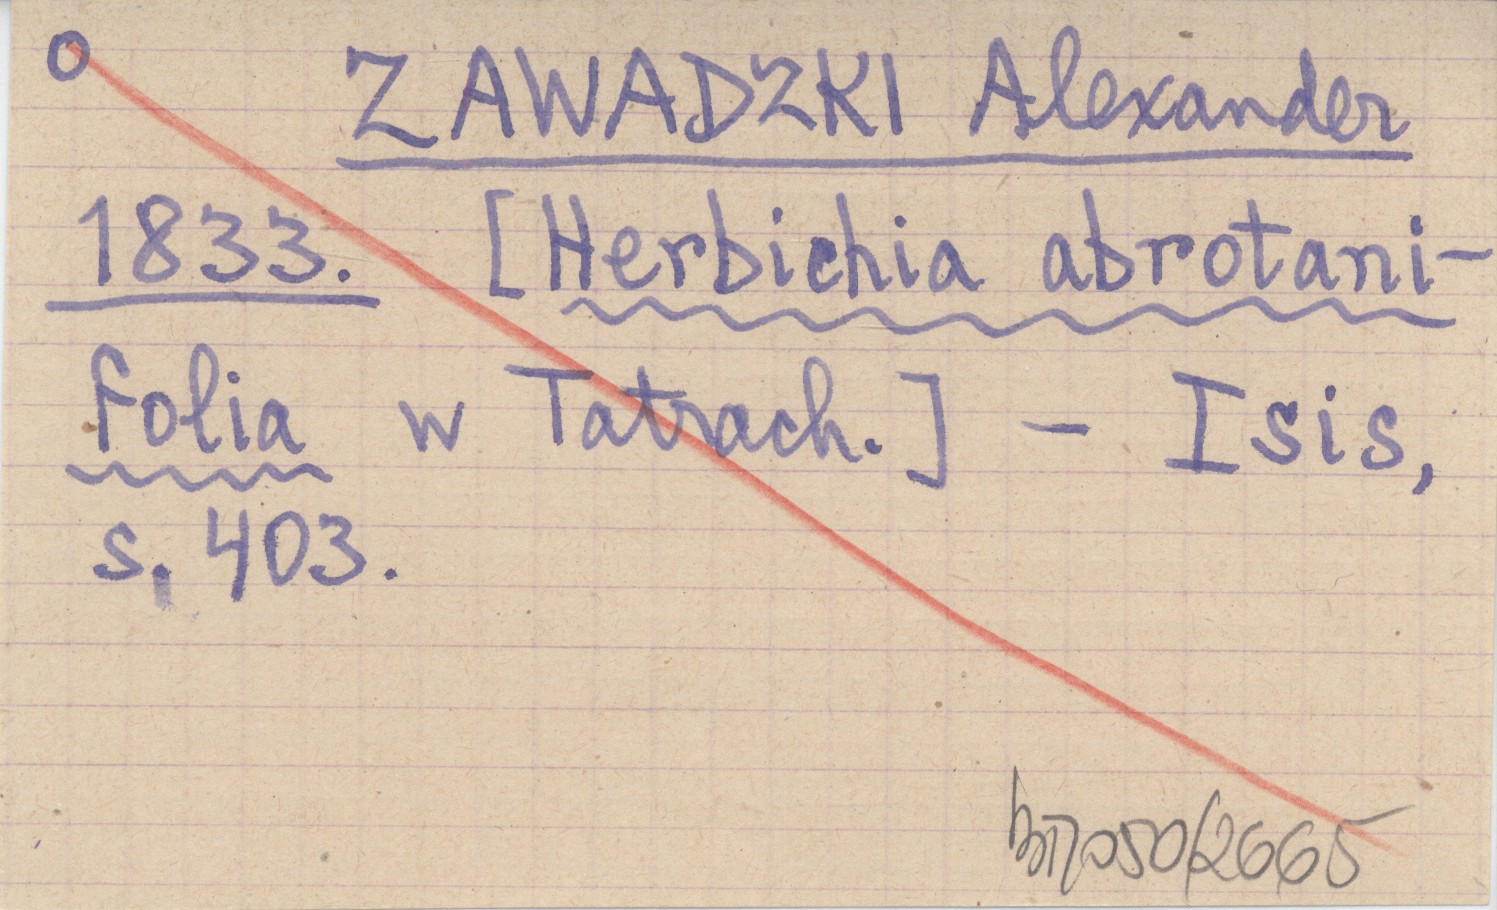 O ZAWADZKI Alexander
1833. [Herbichia abrotani-
folia w Tatrach.] - Isis,
s. 403.